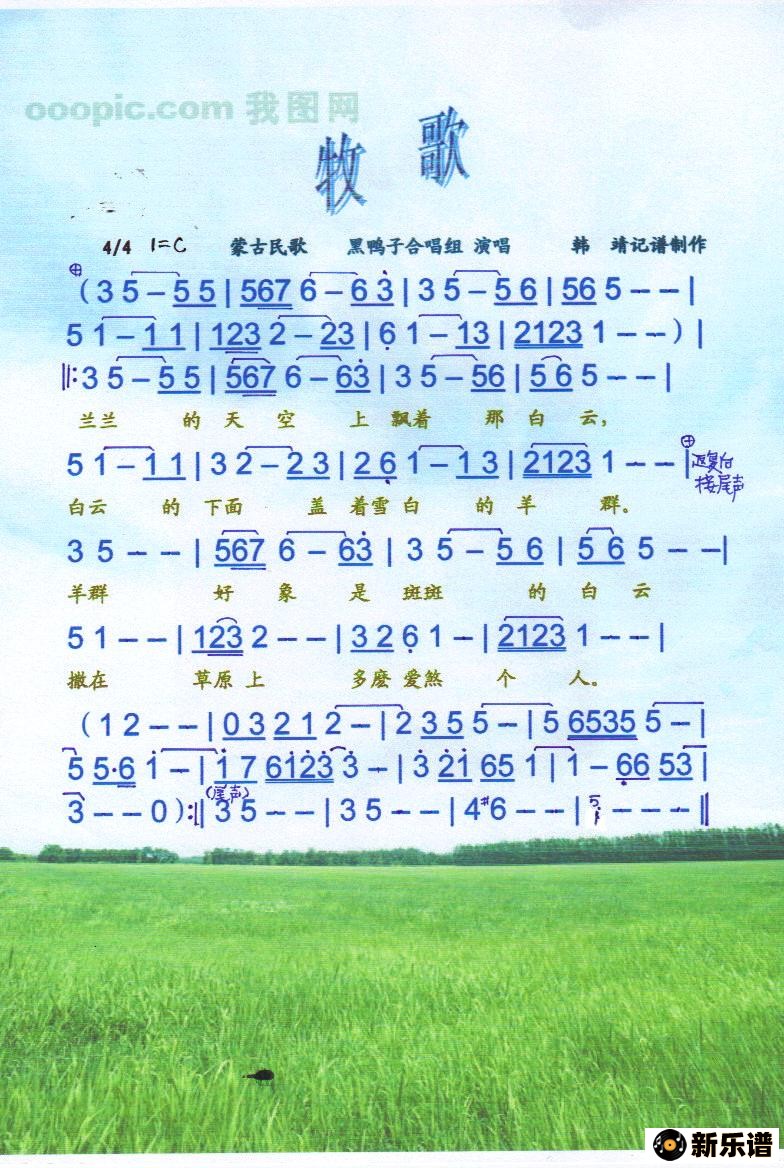 ooopic.com 我图网
牧 歌
4/4 1=C 蒙古民歌 黑鸭子合唱组 演唱 韩 靖记谱制作
(3 5 – 5 5 | 567 6 – 6 3̇ | 3 5 – 5 6 | 56 5 – – |
5 1 – 1 1 | 123 2 – 23 | 6̣ 1 – 13 | 2123 1 – – ) |
‖: 3 5 – 5 5 | 567 6 – 63̇ | 3 5 – 56 | 5 6 5 – – |
兰兰 的 天 空 上 飘着 那 白 云,
5 1 – 1 1 | 3 2 – 2 3 | 2 6̣ 1 – 1 3 | 2123 1 – – | 反复后
接尾声
白云 的 下面 盖 着雪 白 的 羊 群。
3 5 – – | 567 6 – 63̇ | 3 5 – 5 6 | 5 6 5 – – |
羊群 好 象 是 斑斑 的 白 云
5 1 – – | 123 2 – – | 3 2 6̣ 1 – | 2123 1 – – |
撒在 草原 上 多麽 爱煞 个 人。
(1 2 – – | 0 3 2 1 2 – | 2 3 5 5 – | 5 6535 5 – |
5 5·6 1̇ – | 1̇ 7 61̇2̇3̇ 3̇ – | 3̇ 2̇1̇ 65 1 | 1 – 66 53 |
3 – – 0 ) :‖ (尾声) 3 5 – – | 3 5 – – | 4 #6 – – | 5 – – – ‖
新乐谱